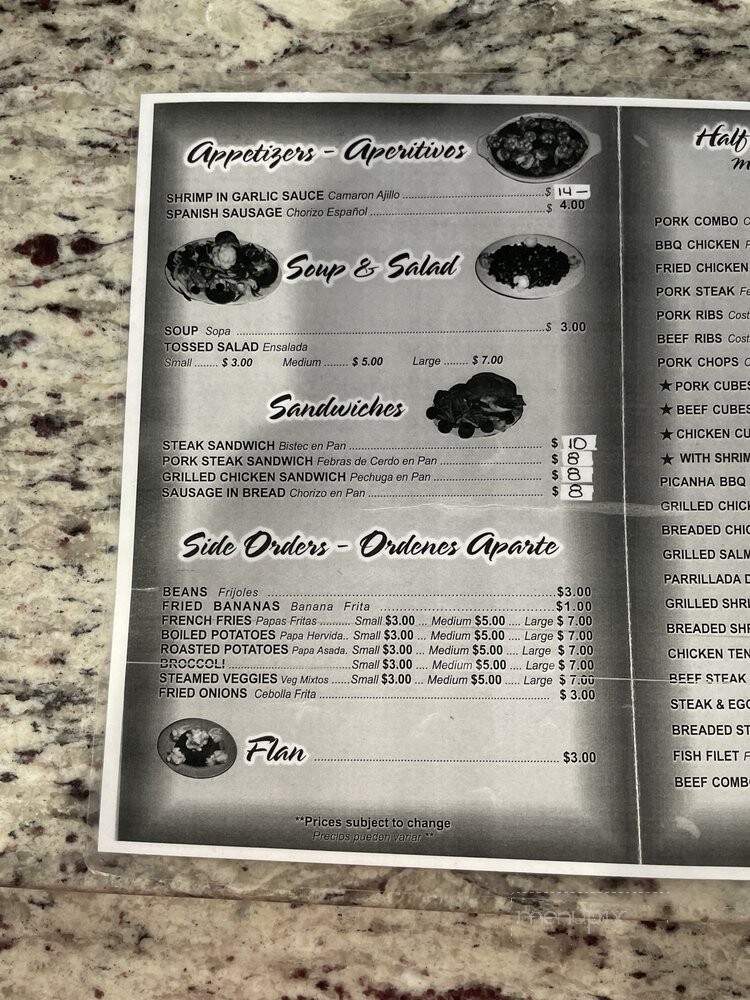 Appetizers - Aperitivos
SHRIMP IN GARLIC SAUCE Camaron Ajillo ........ $ 14 –
SPANISH SAUSAGE Chorizo Español ........ $ 4.00
Soup & Salad
SOUP Sopa ........ $ 3.00
TOSSED SALAD Ensalada
Small ........ $ 3.00 Medium ........ $ 5.00 Large ........ $ 7.00
Sandwiches
STEAK SANDWICH Bistec en Pan ........ $ 10
PORK STEAK SANDWICH Febras de Cerdo en Pan ........ $ 8
GRILLED CHICKEN SANDWICH Pechuga en Pan ........ $ 8
SAUSAGE IN BREAD Chorizo en Pan ........ $ 8
Side Orders - Ordenes Aparte
BEANS Frijoles ........ $3.00
FRIED BANANAS Banana Frita ........ $1.00
FRENCH FRIES Papas Fritas .......... Small $3.00 ... Medium $5.00 .... Large $ 7.00
BOILED POTATOES Papa Hervida.. Small $3.00 ... Medium $5.00 .... Large $ 7.00
ROASTED POTATOES Papa Asada. Small $3.00 ... Medium $5.00 .... Large $ 7.00
BROCCOLI ........ Small $3.00 ... Medium $5.00 .... Large $ 7.00
STEAMED VEGGIES Veg Mixtos ...... Small $3.00 ... Medium $5.00 .... Large $ 7.00
FRIED ONIONS Cebolla Frita ........ $ 3.00
Flan ........ $3.00
**Prices subject to change
Precios pueden variar **
Half
PORK COMBO C
BBQ CHICKEN
FRIED CHICKEN
PORK STEAK Fe
PORK RIBS Cost
BEEF RIBS Cost
PORK CHOPS C
★ PORK CUBES
★ BEEF CUBES
★ CHICKEN CU
★ WITH SHRIM
PICANHA BBQ
GRILLED CHICK
BREADED CHIC
GRILLED SALM
PARRILLADA D
GRILLED SHRI
BREADED SHR
CHICKEN TEN
BEEF STEAK
STEAK & EGG
BREADED ST
FISH FILET F
BEEF COMB
menupix